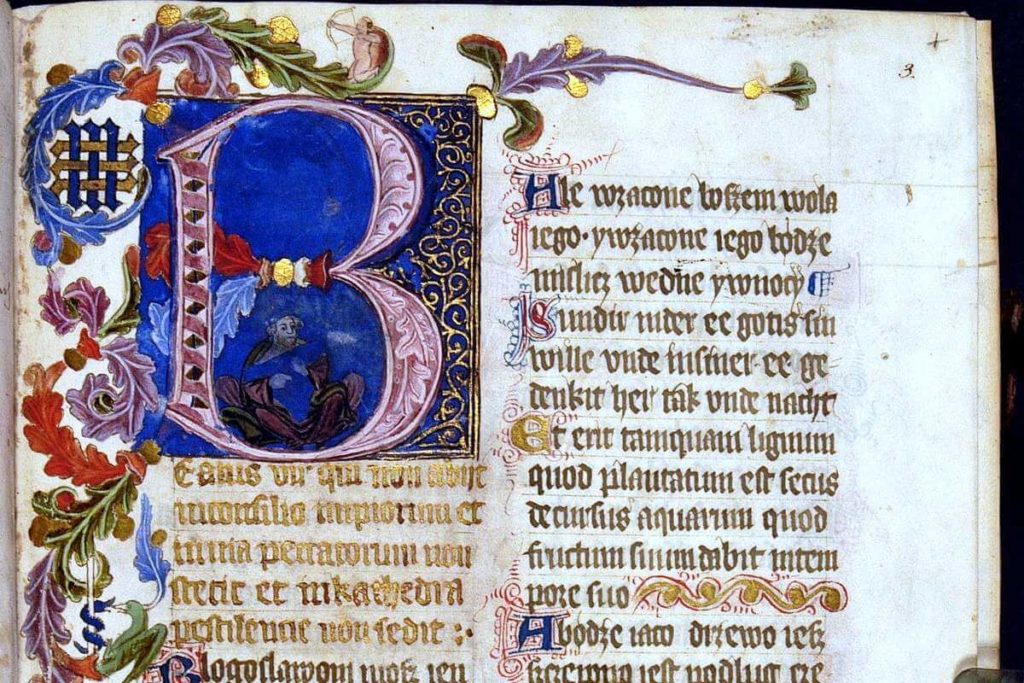 B
Eatus vir qui non abijt
inconsilio impiorum et
inuia peccatorum non
stetit et inkathedra
pestilencie non sedit :·
Blogoslawoni mosz ien
3.
Ale wzacone boszem wola
iego · ywzacone iego bodze
mislicz wedne ywnocy
Sundir inder ee gotis sin
wille vnde insiner ee ge-
denkit her tak vnde nacht
Et erit tamquam lignum
quod plantatum est secus
decursus aquarum quod
fructum suum dabit intem
pore suo
Abodze iaco drzewo iesz
szczepono iest podlug cze